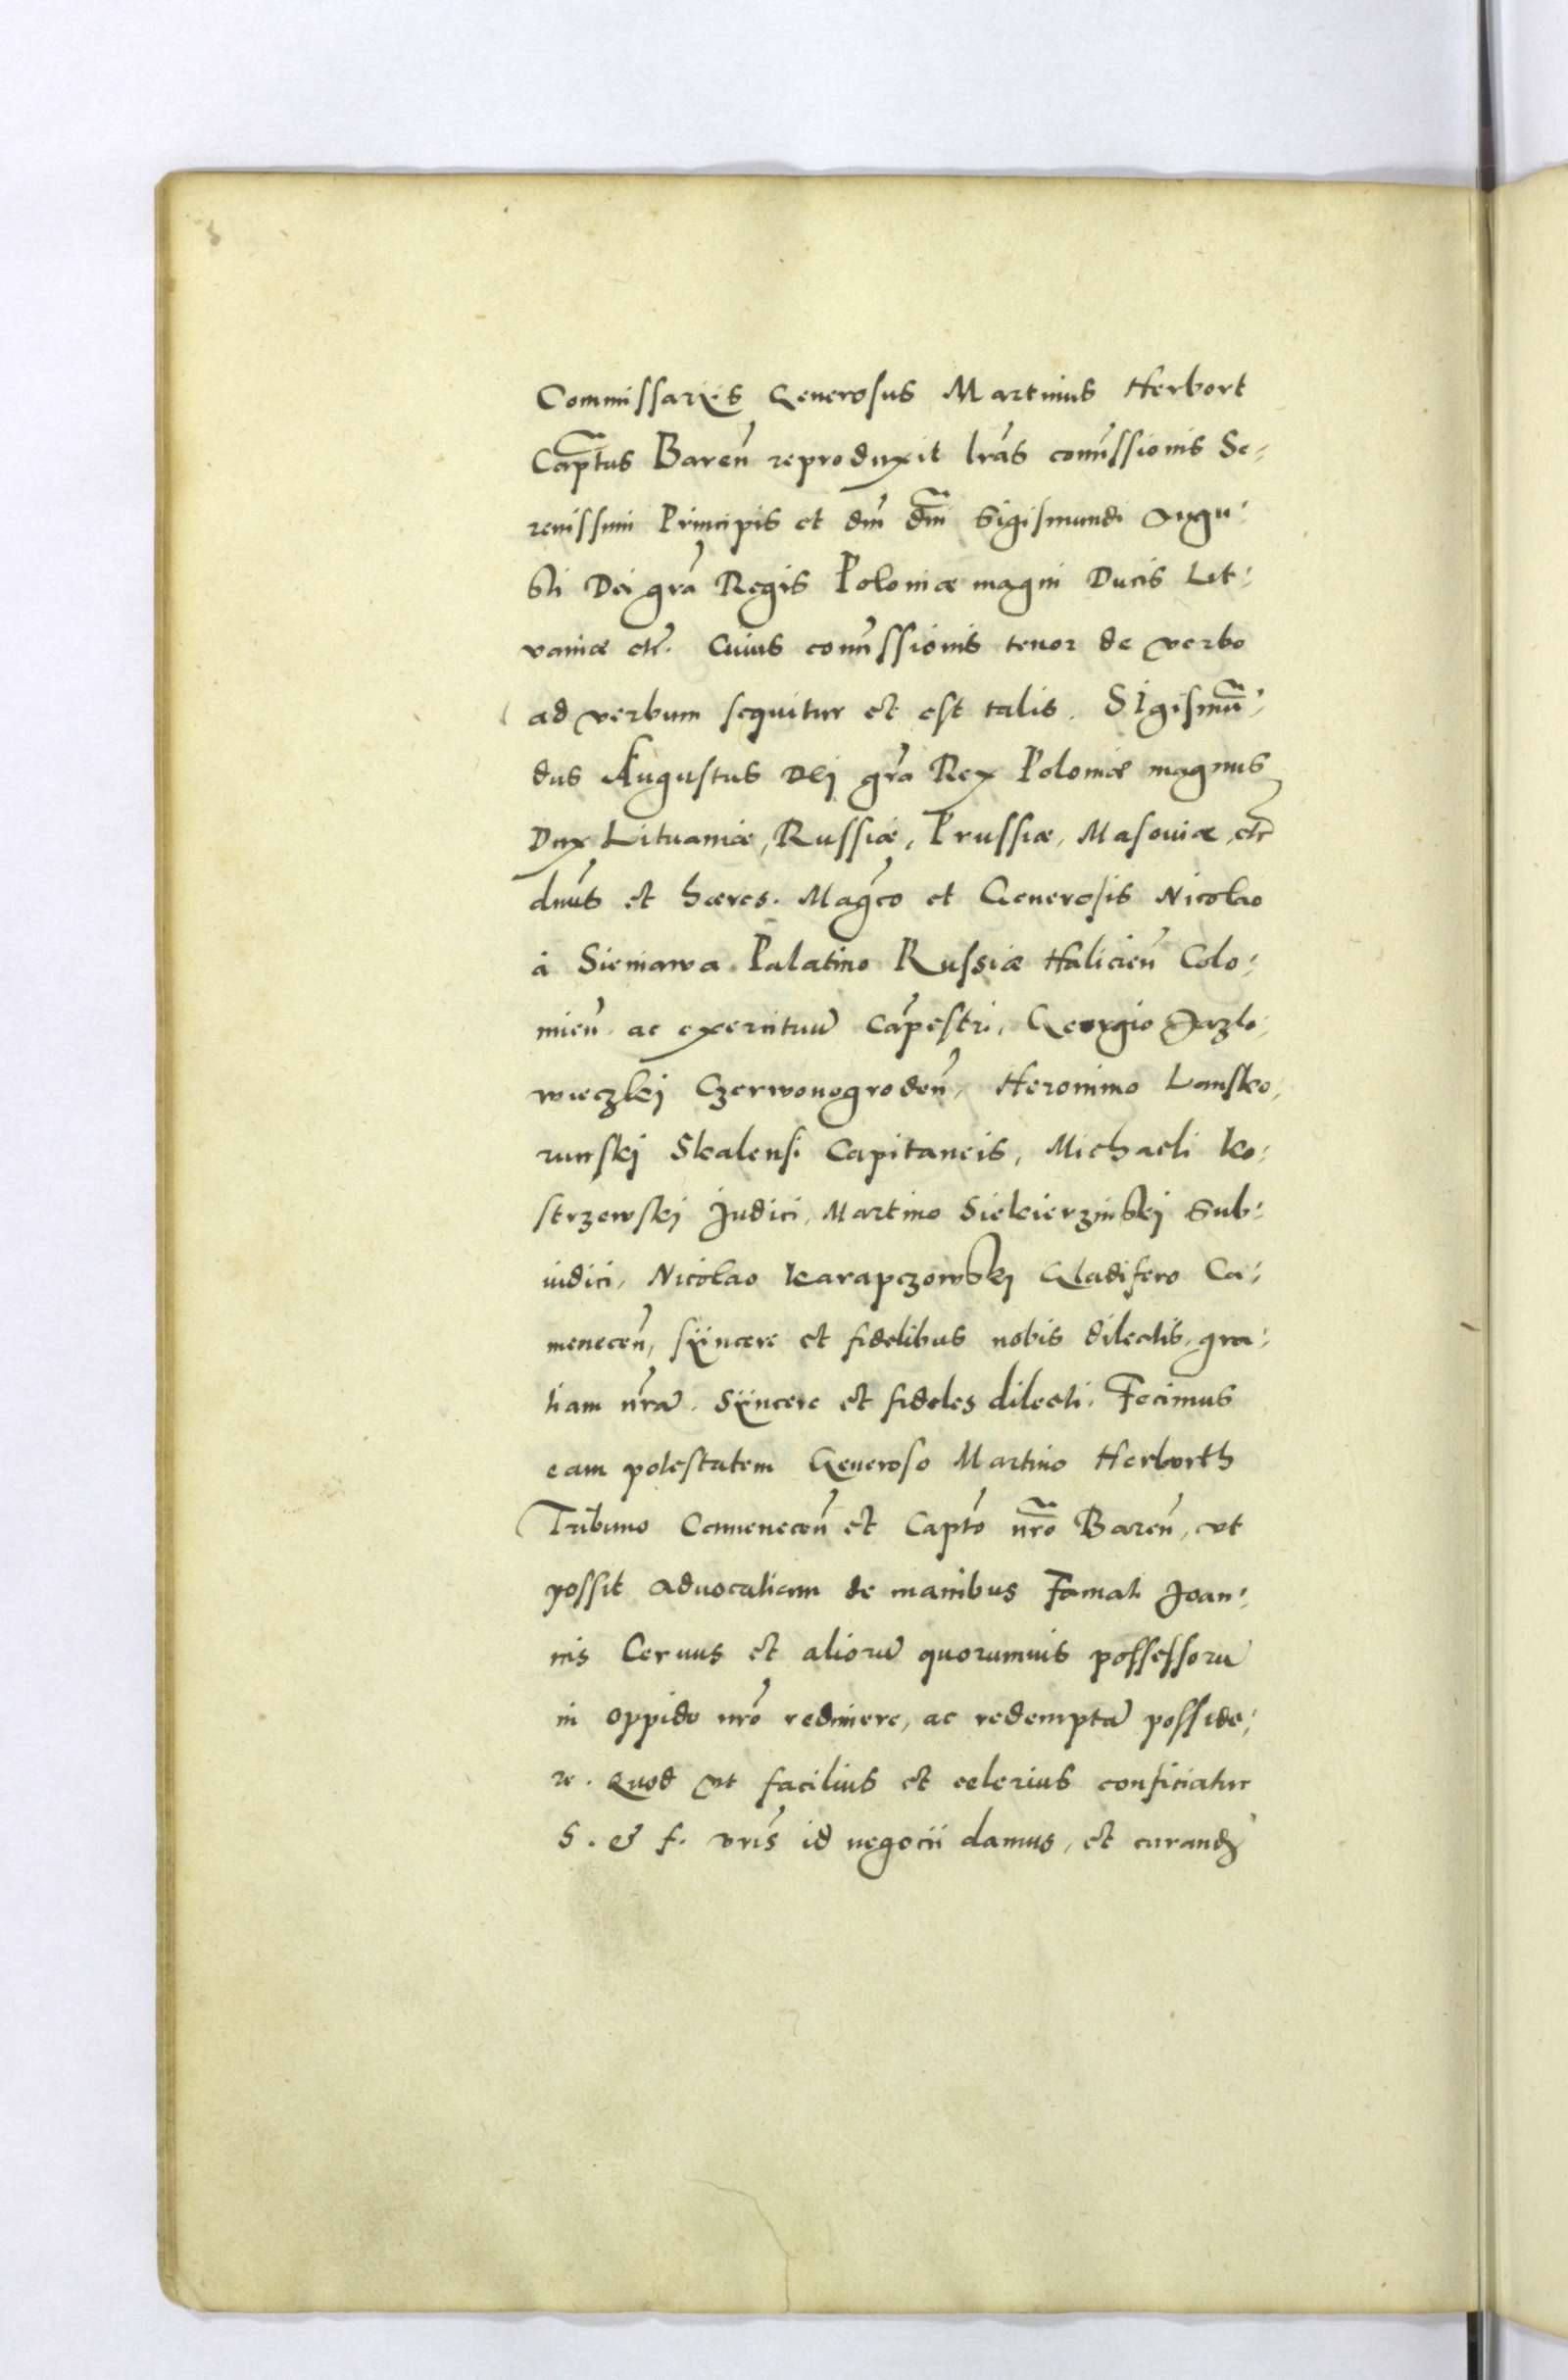 Commissarijs Generosus Martinus Herbort
Captus Baren̄ reproduxit lras̄ comissionis Se:
renissimi Principis et dn̄i dn̄i Sigismundi Augu:
sti Dei gr̄a Regis Poloniæ magni Ducis Lit:
vaniæ etc. Cuius comissionis tenor de verbo
ad verbum sequitur et est talis. SIgismū:
dus Augustus DEj gr̄a Rex Poloniæ magnus
Dux Lituaniæ, Russiæ, Prussiæ, Masouiæ, etc
dnus̄ et hæres. Magco et Generosis Nicolao
à Sieniawa Palatino Russiæ Halicien̄ Colo:
mien̄ ac exercituū Cāpestri, Georgio Jazlo,
wieczkj Czerwonogroden̄, Heronimo Lansko,
runskj Skalensi Capitaneis, Michaeli Ko:
strzewskj Judici, Martino Siekierzinskj Sub:
iudici, Nicolao Karapczowskj Gladifero Ca:
menecen̄, sÿncere et fidelibus nobis dilectis, gra:
tiam nr̄ā. Sÿncere et fideles dilecti. Fecimus
eam potestatem Generoso Martino Herborth
Tribuno Camenecen̄ et Capto nr̄o Baren̄, vt
possit aduocatiam de manibus Famati Joan:
nis Ceruus et aliorū quorumuis possessorū
in oppido nr̄o redimere, ac redemptā posside:
re. Quod vt facilius et celerius conficiatur
S. & f. vris̄ id negocii damus, et curandȝ